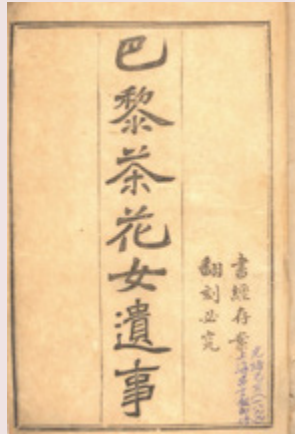 巴黎茶花女遺事
書經存案
翻刻必究